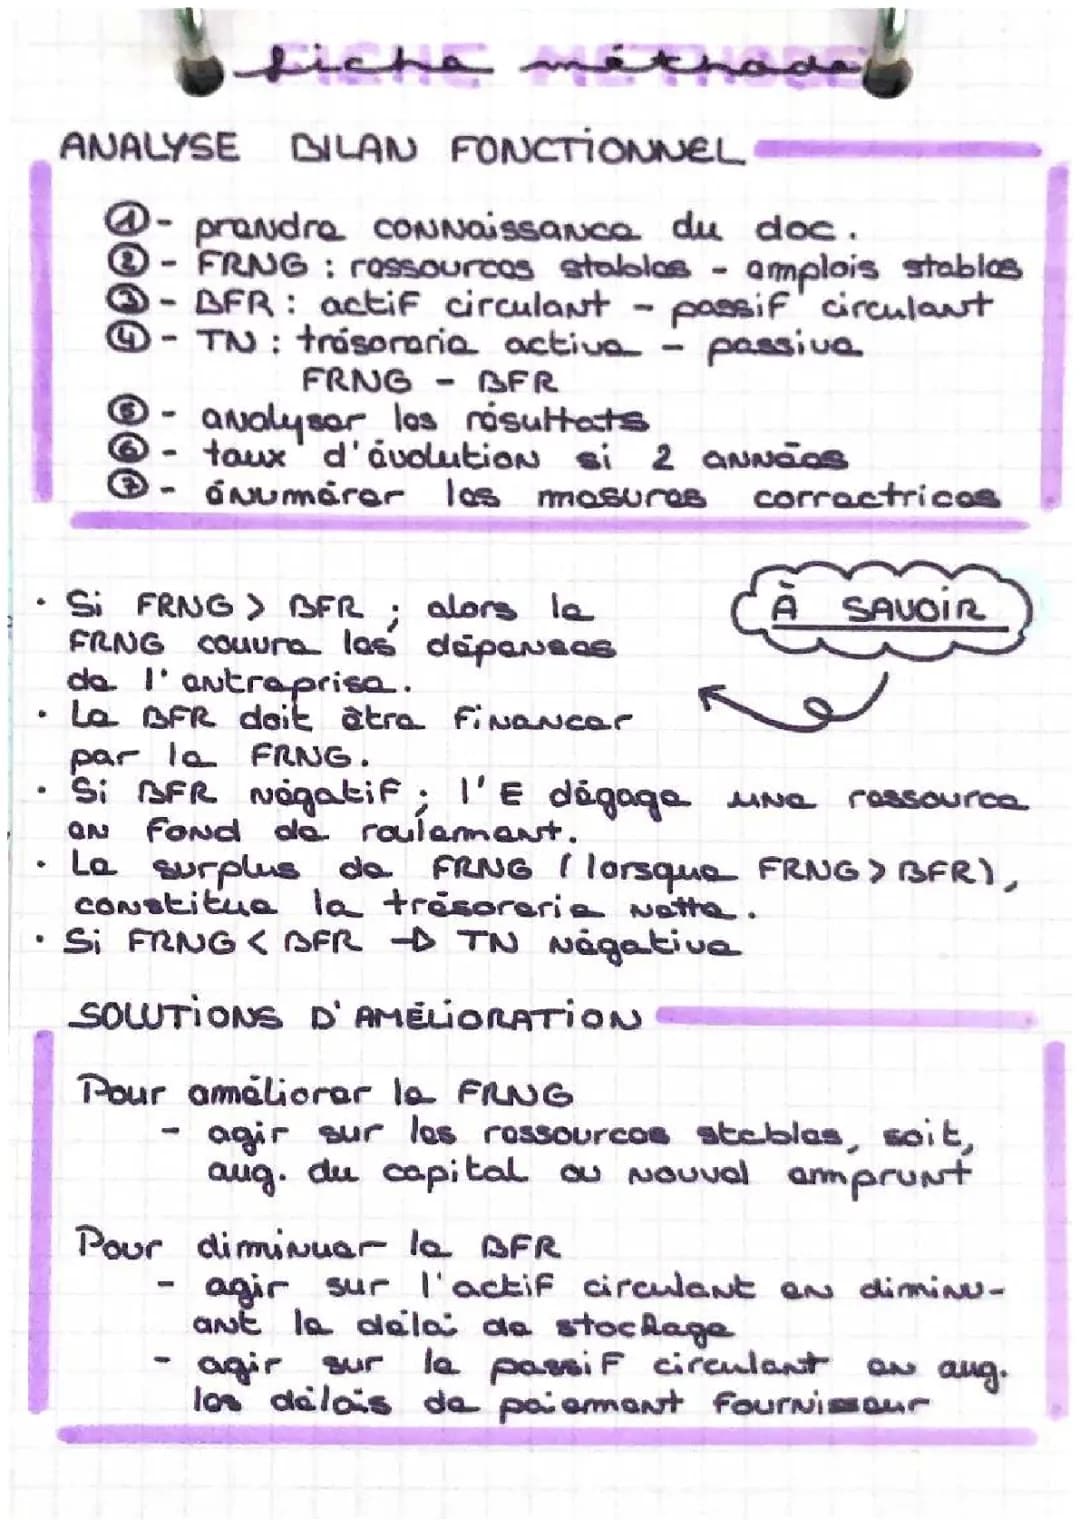 fiche méthode
ANALYSE BILAN FONCTIONNEL
① - prendre connaissance du doc.
② - FRNG : ressources stables - emplois stables
③ - BFR : actif circulant - passif circulant
④ - TN : trésorerie active - passive
FRNG - BFR
⑤ - analyser les résultats
⑥ - taux d'évolution si 2 années
⑦ - énumérer les mesures correctrices
À SAVOIR
· Si FRNG > BFR ; alors le
FRNG couvre les dépenses
de l'entreprise.
· Le BFR doit être financer
par le FRNG.
· Si BFR négatif ; l'E dégage une ressource
en fond de roulement.
· Le surplus de FRNG (lorsque FRNG > BFR),
constitue la trésorerie nette.
· Si FRNG < BFR → TN négative
SOLUTIONS D'AMÉLIORATION
Pour améliorer le FRNG
- agir sur les ressources stables, soit,
aug. du capital ou nouvel emprunt
Pour diminuer le BFR
- agir sur l'actif circulant en diminu-
ant le délai de stockage
- agir sur le passif circulant en aug.
les délais de paiement fournisseur